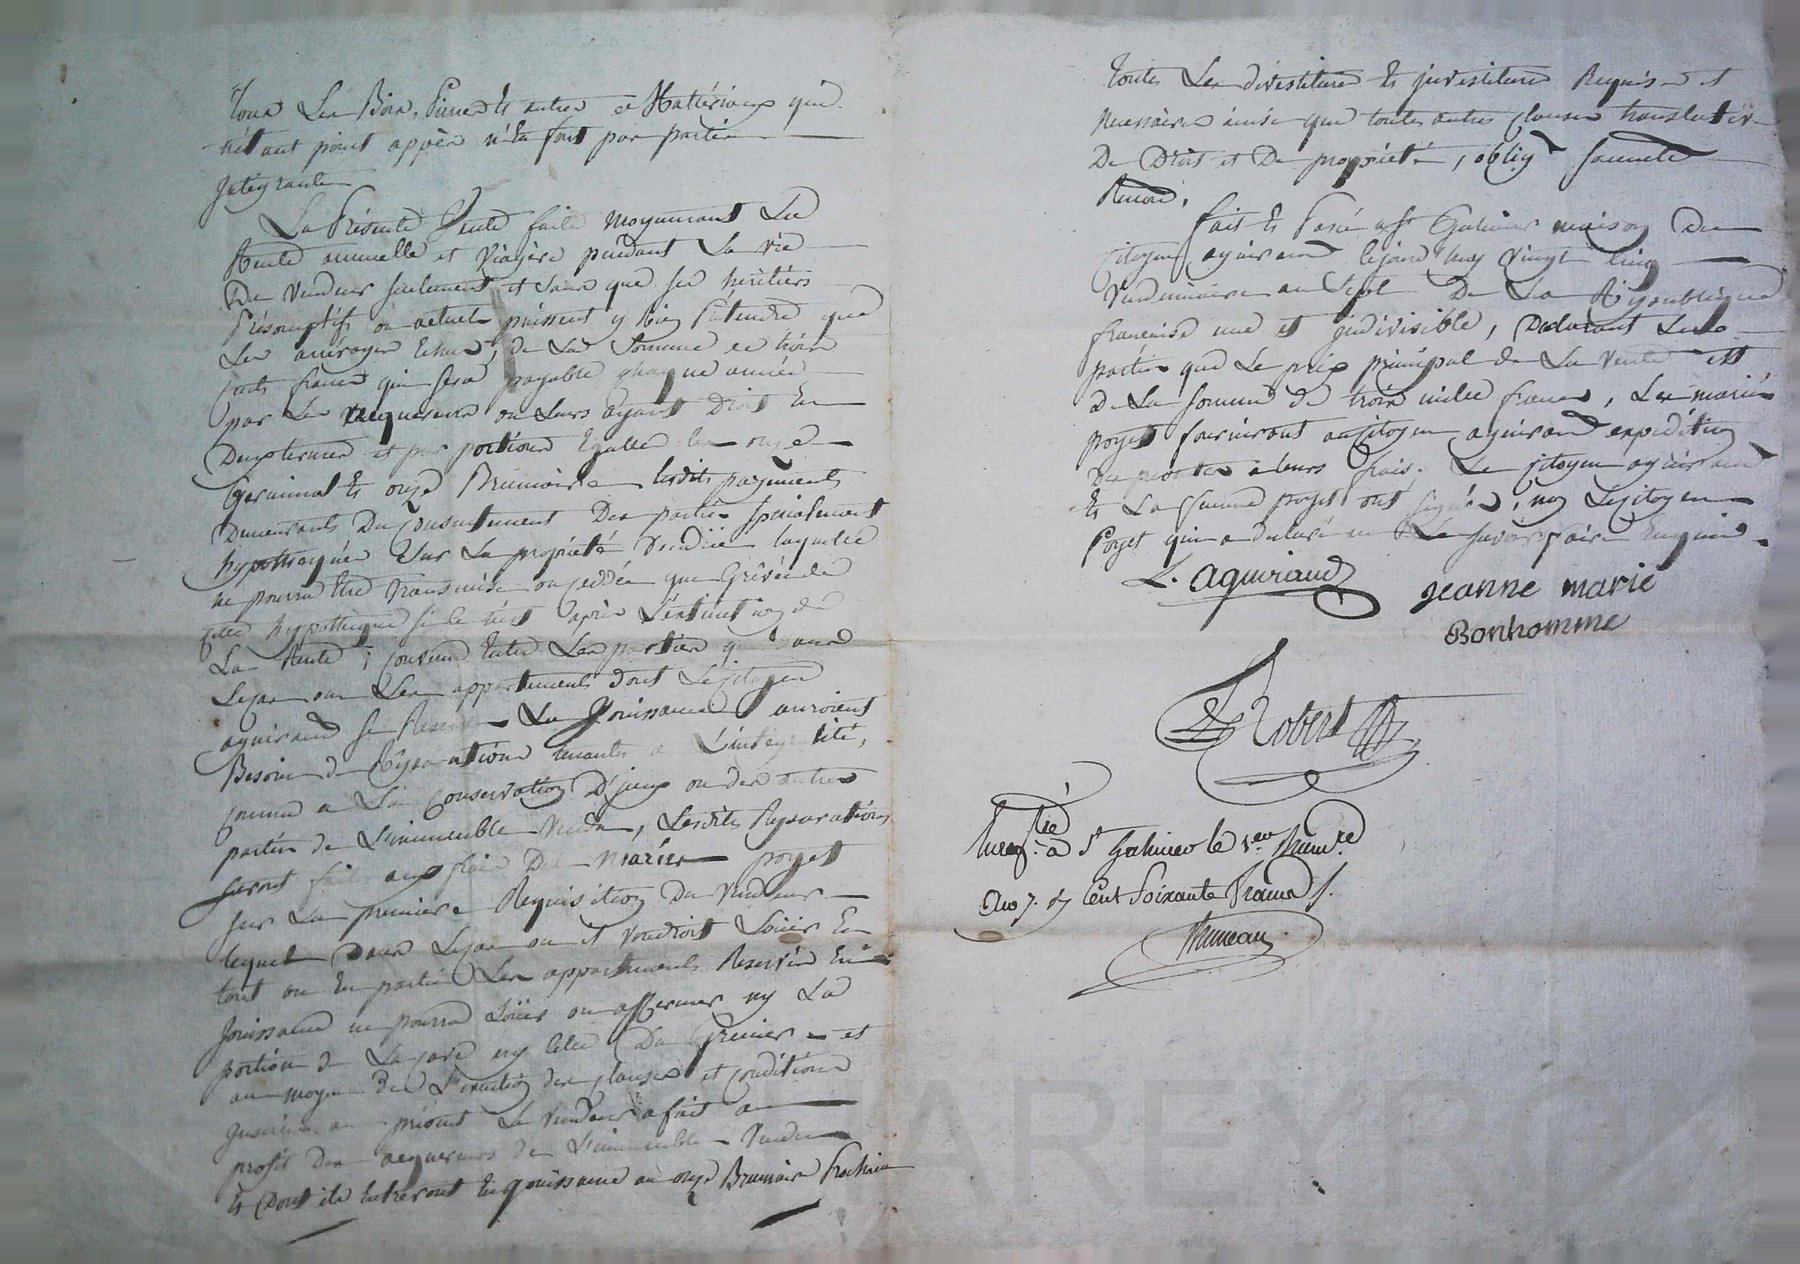 Tous Les Bois, Pierres Et autres Matériaux qui
n'étant point apper n'En font pas partie
Intégrante
La Présente Vente faite moyennant La
Rente annuelle et Viagère pendant La vie
Du Vendeur seulement et sans que ses héritiers
Présomptifs ou actuels puissent y Rien Prétendre que
Les arrérages Echus, de La Somme de trois
cents francs qui sera payable chaque année
par Les acquereurs ou Leurs ayants Droit En
Deux termes et par portions Egalles Les onze
Germinal Et onze Brumaire lesdits payements
Demeurants Du Consentement Des parties spécialement
hypothéquée Sur La propriété Vendue laquelle
ne pourra Etre transmise ou ceddée que Grévée de
cette hypothéque si ce n'est après L'extinction de
La Rente ; convenu Entre Les parties que dans
Le cas ou Les appartements dont Le Citoyen
aguiraud se Reserve La Jouissance auroient
Besoin de Réparations tenantes a L'intégralité,
comme a La Conservation D'jeux ou des autres
parties de L'immeuble Vendu, Lesdites Réparations
seront faites aux frais Des mariés poyet
sur La premiere Requisition du Vendeur
lequel Dans Le cas ou il voudroit Louer En
tout ou En partie Les appartements Reservés En
Jouissance ne pourra Loüer ou affermer ny La
portion de La cave ny celle Du Grenier et
au moyen De L'exécution des clauses et conditions
Inserées au présent Le Vendeur a fait au
profit Des acquereurs de L'immeuble Vendu
Et Dont ils Entreront En Jouissance au onze Brumaire Prochain
toutes Les divestitures Et investitures Requises et
Necessaires ainsi que toutes autres clauses translatives
De Droit et De propriété, oblig
Renon.
Fait Et Passé a St Galmier maison du
Citoyen aguiraud Lejourd'huy vingt cinq
Vendemiaire an Sept De La République
francaise une et indivisible, Declarant Les
parties que Le prix principal de La Vente est
de La somme de trois mille francs, Les mariés
poyet fourniront au Citoyen aguiraud expédition
des présentes a leurs frais. Le Citoyen aguiraud
Et La femme poyet ont signé, ny Le citoyen
Poyet qui a declaré ne Le Savoir faire Enquis.
L. aguiraud Jeanne marie
Bonhomme
Robert
Enregtré à St Galmier le 1er Brumre
An 7. Rç Cent Soixante Francs.
Thuneau